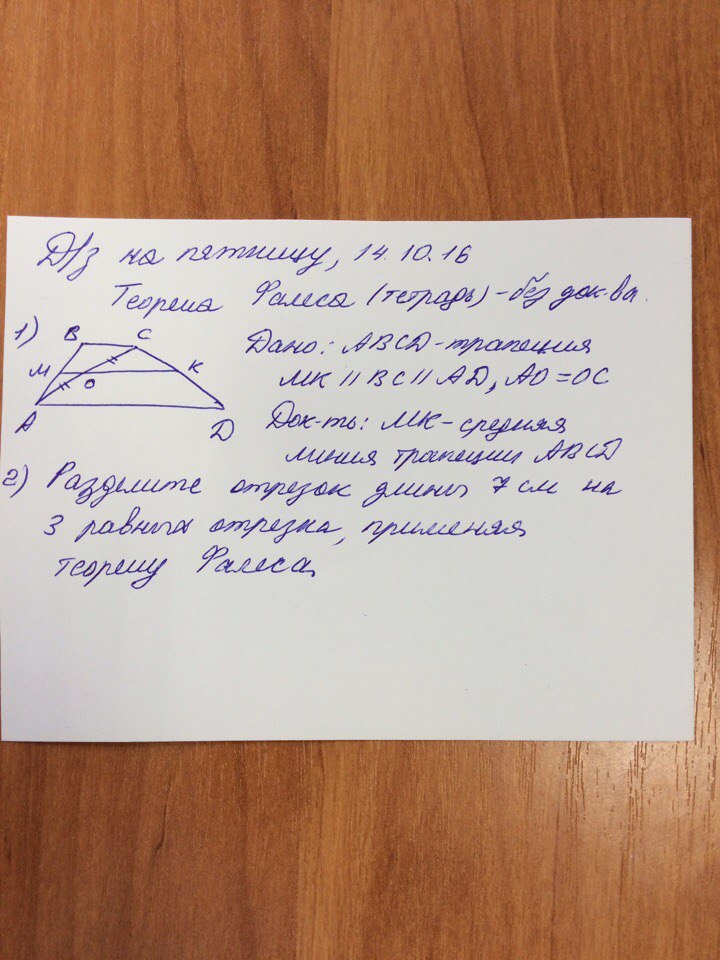 Д/з на пятницу, 14.10.16
Теорема Фалеса (тетрадь) - без док-ва.
1)
B C
M O K
A D
Дано: ABCD - трапеция
MK || BC || AD, AO = OC
Док-ть: MK - средняя
линия трапеции ABCD
2) Разделите отрезок длины 7 см на
3 равных отрезка, применяя
теорему Фалеса.